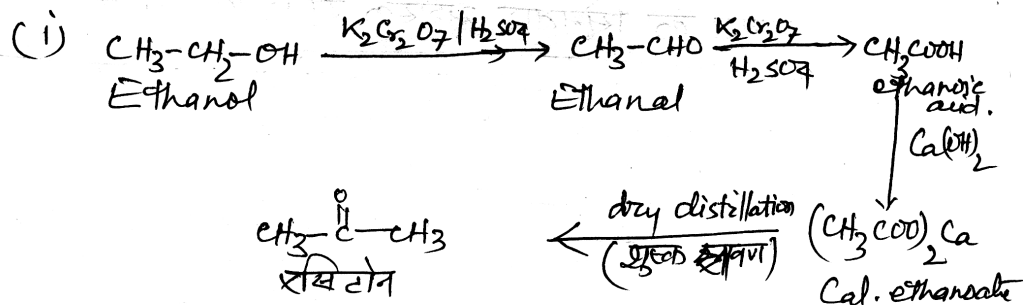 (i) CH3-CH2-OH K2Cr2O7 | H2SO4 CH3-CHO K2Cr2O7 H2SO4 CH3COOH
Ethanol Ethanal ethanoic acid.
Ca(OH)2
O
CH3-C-CH3 dry distillation (CH3COO)2Ca
एसिटोन (शुष्क आसवन) Cal. ethanoate